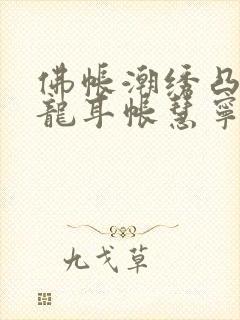 佛帐潮绣凸
龍耳帐慧寧
九戈草